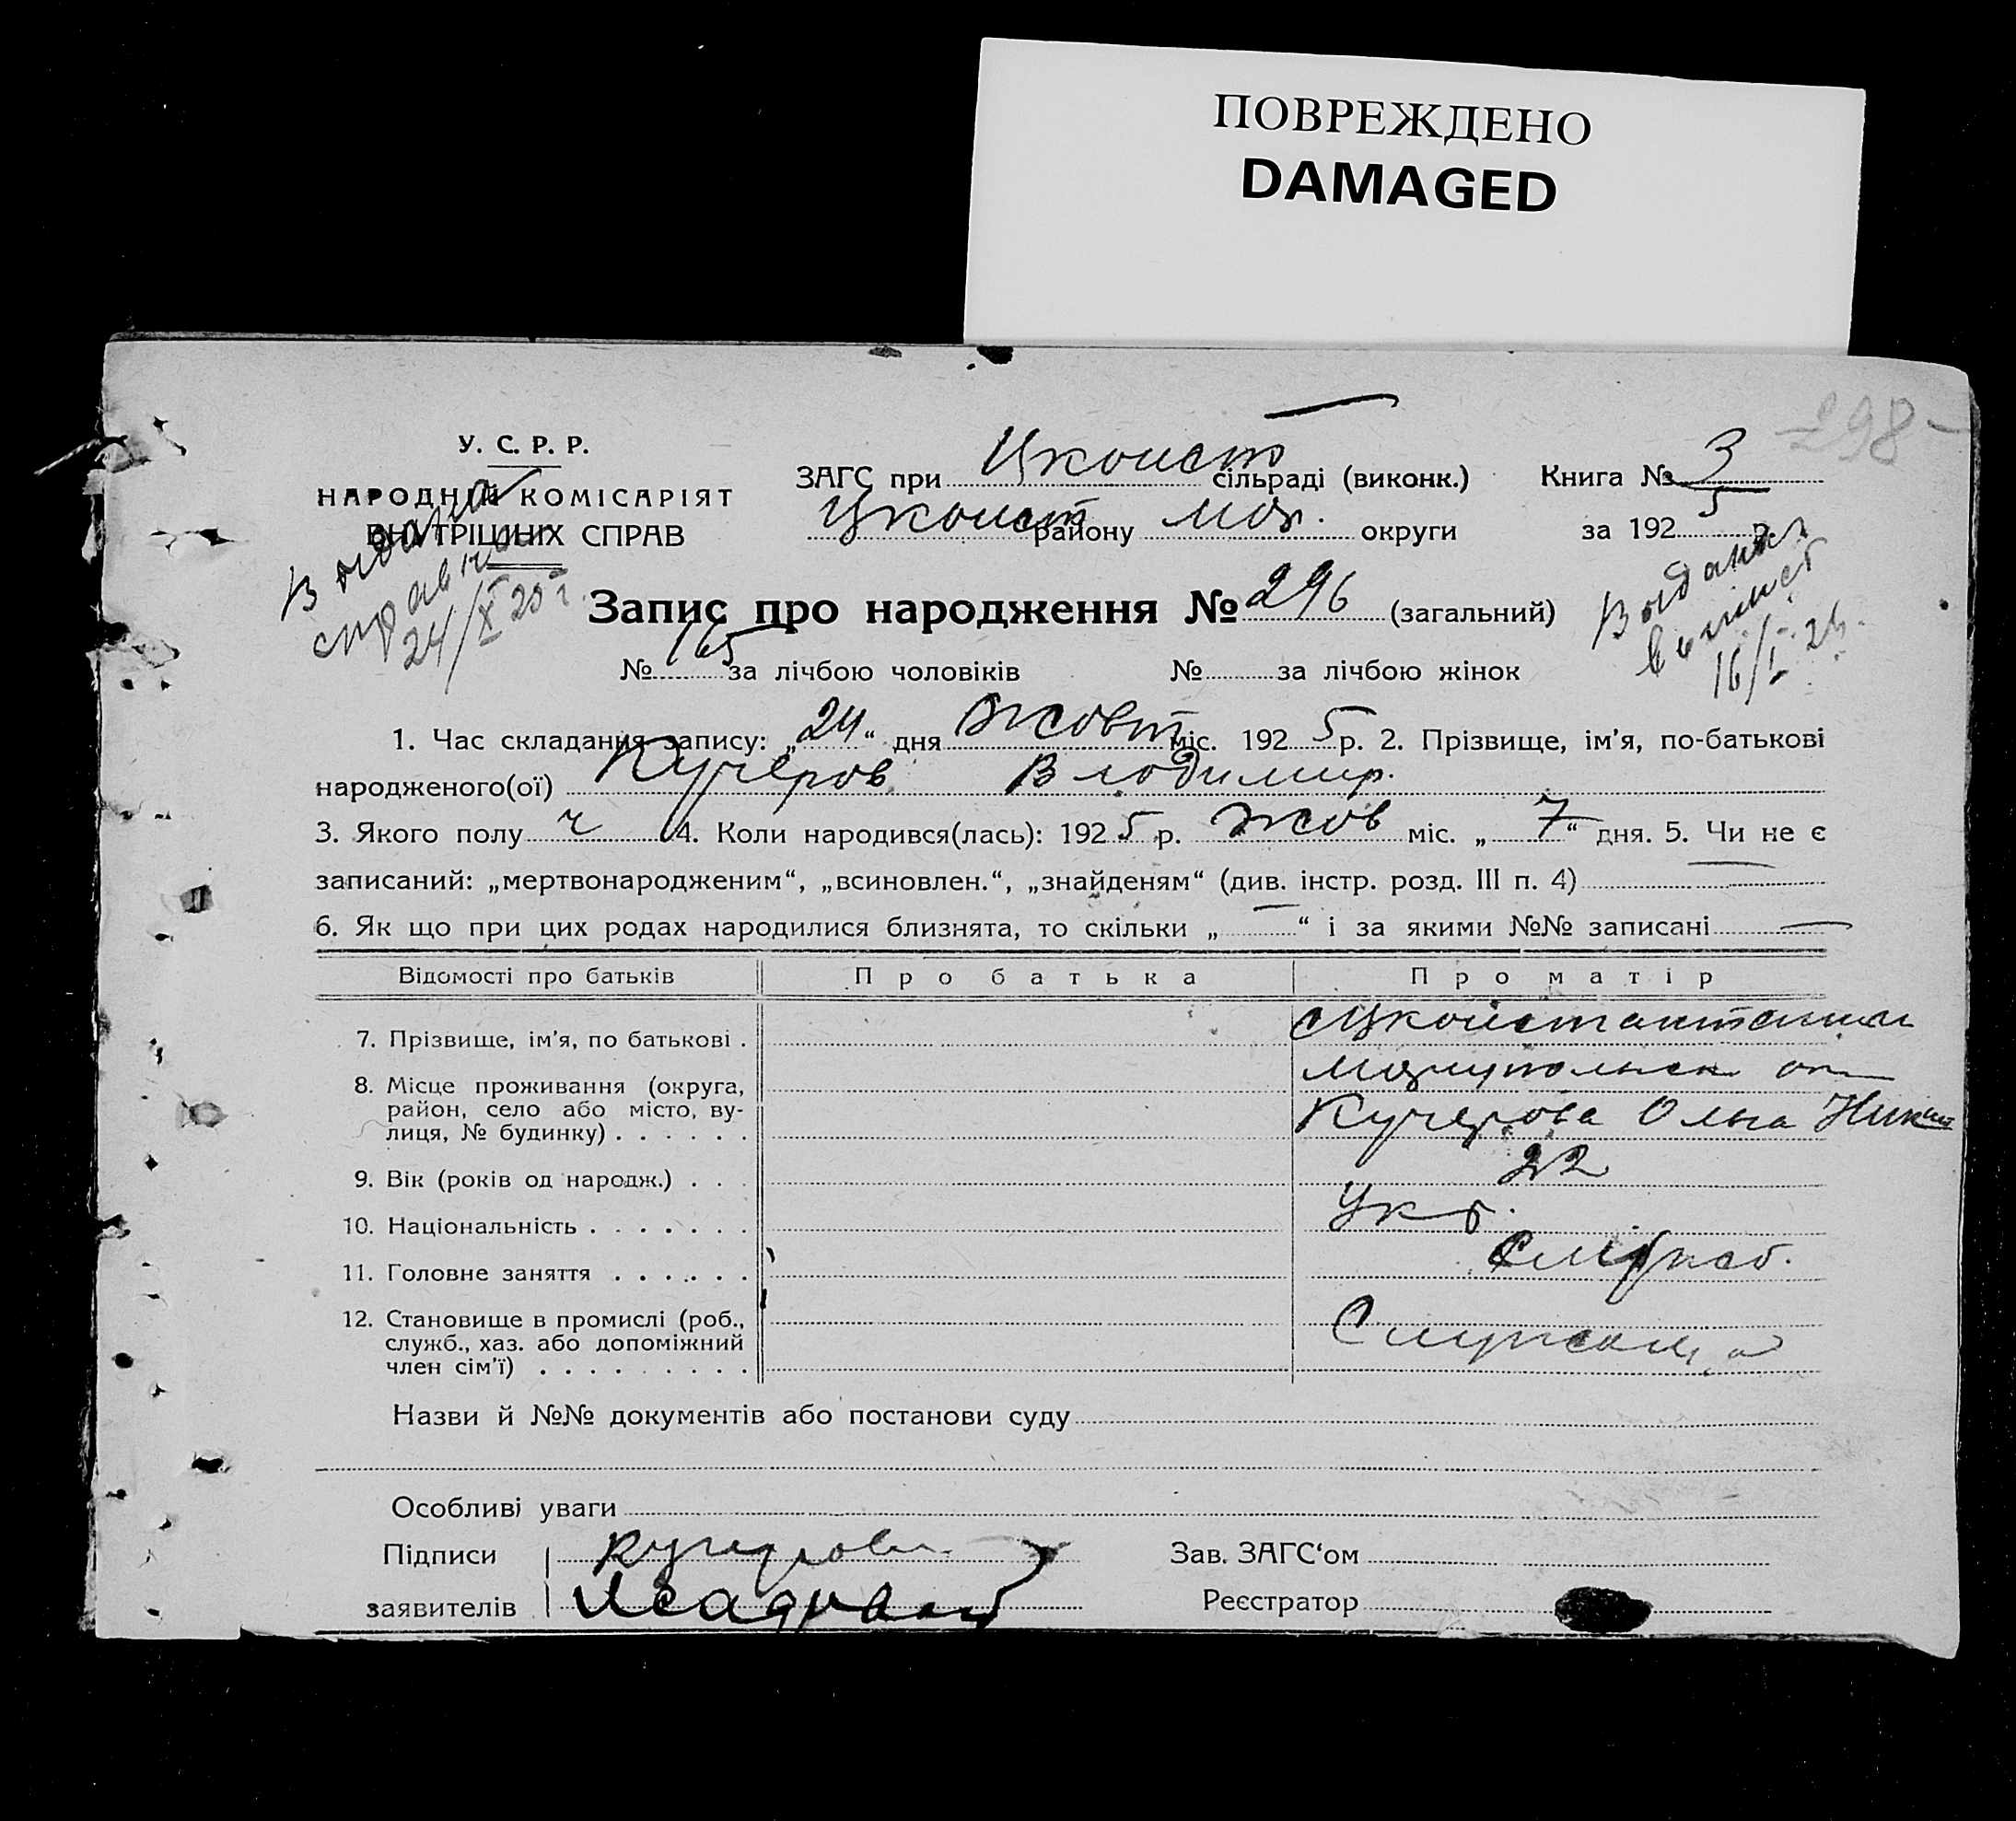 ПОВРЕЖДЕНО
DAMAGED
298
У. С. Р. Р.
НАРОДНІЙ КОМІСАРІЯТ
ВНУТРІШНІХ СПРАВ
Выдана
справка
24/X 25 г.
ЗАГС при Цконст сільраді (виконк.)
Цконст району Мар. округи
Книга № 3
за 1925 р.
Выдана
выпись
16/I 26.
Запис про народження № 296 (загальний)
№ 165 за лічбою чоловіків № за лічбою жінок
1. Час складання запису: „24“ дня Жовт міс. 1925 р. 2. Прізвище, ім’я, по-батькові
народженого(ої) Кучеров Влодимир.
3. Якого полу ч 4. Коли народився(лась): 1925 р. Жов міс. „7“ дня. 5. Чи не є
записаний: „мертвонародженим“, „всиновлен.“, „знайденям“ (див. інстр. розд. III п. 4)
6. Як що при цих родах народилися близнята, то скільки „ — “ і за якими №№ записані —
Відомості про батьків Про батька Про матір
7. Прізвище, ім’я, по батькові .
8. Місце проживання (округа,
район, село або місто, ву-
лиця, № будинку) . . . . . .
Мариупольск ок
Кучерова Ольга Никит
9. Вік (років од народж.) . . . 22
10. Національність . . . . . . . Укр.
11. Головне заняття . . . . . .
12. Становище в промислі (роб.,
служб., хаз. або допоміжний
член сім’ї) . . . . . . . . .
Служащ а
Назви й №№ документів або постанови суду
Особливі уваги
Підписи Кучерова Зав. ЗАГС‘ом
заявителів Реєстратор